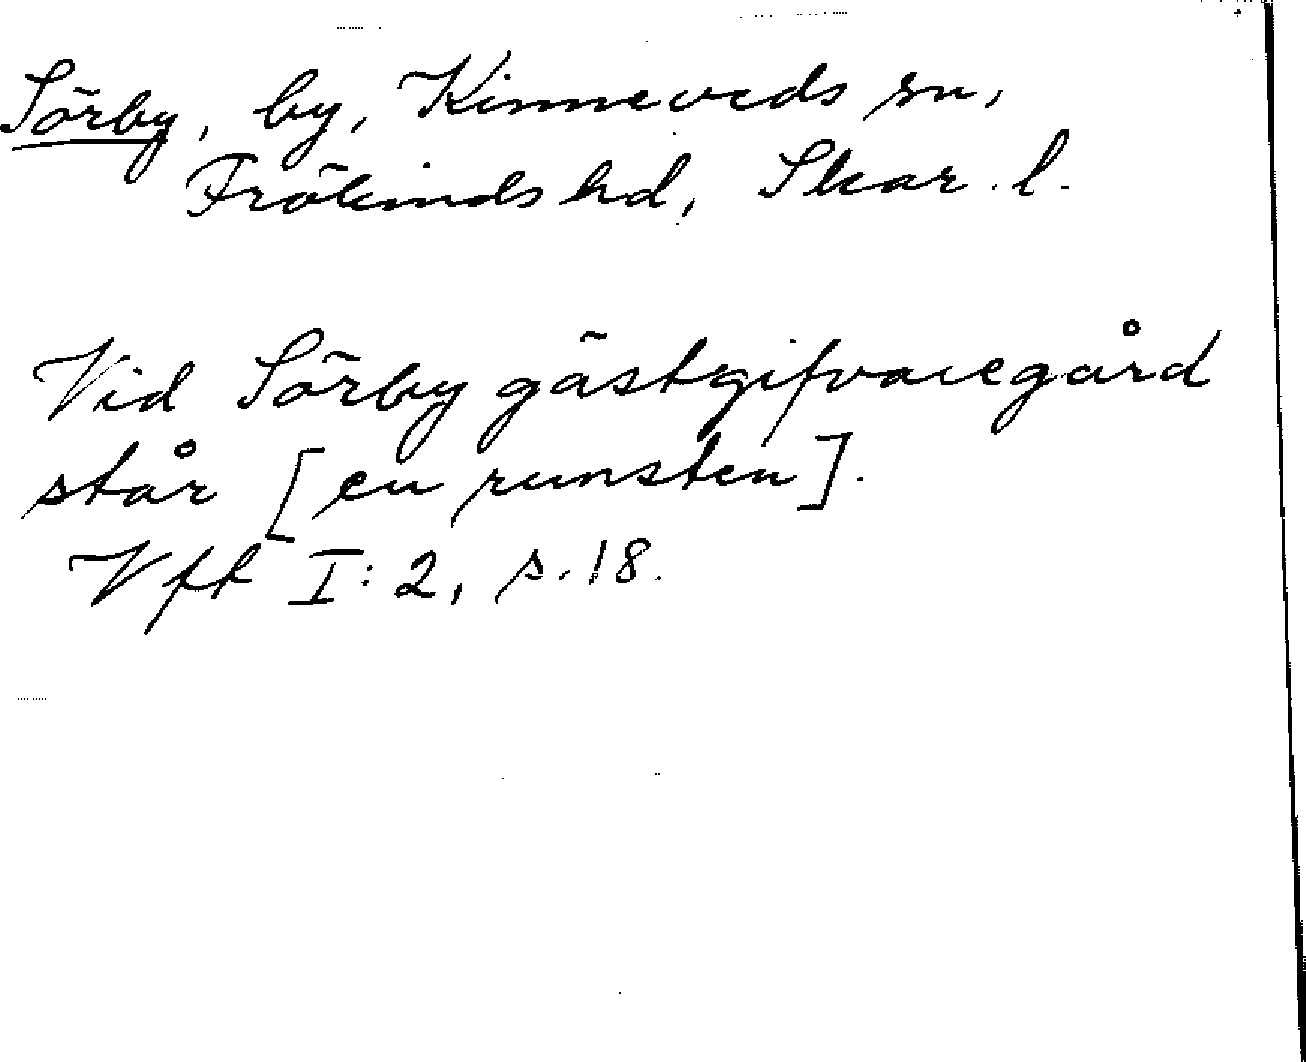 Sörby, by, Kinneveds sn,
Frökinds hd, Skar. l.
Vid Sörby gästgifvaregård
står [en runsten].
Vft I:2, s. 18.